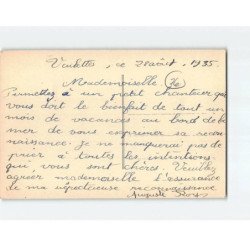 Veulettes, ce 28 août 1935
Mademoiselle
Permettez à un petit chanteur qui
vous doit le bienfait de tout un
mois de vacances au bord de la
mer de vous exprimer sa recon
naissance. Je ne manquerai pas de
prier à toutes les intentions
qui vous sont chères. Veuillez
agréer mademoiselle l'assurance
de ma respectueuse reconnaissance
Auguste